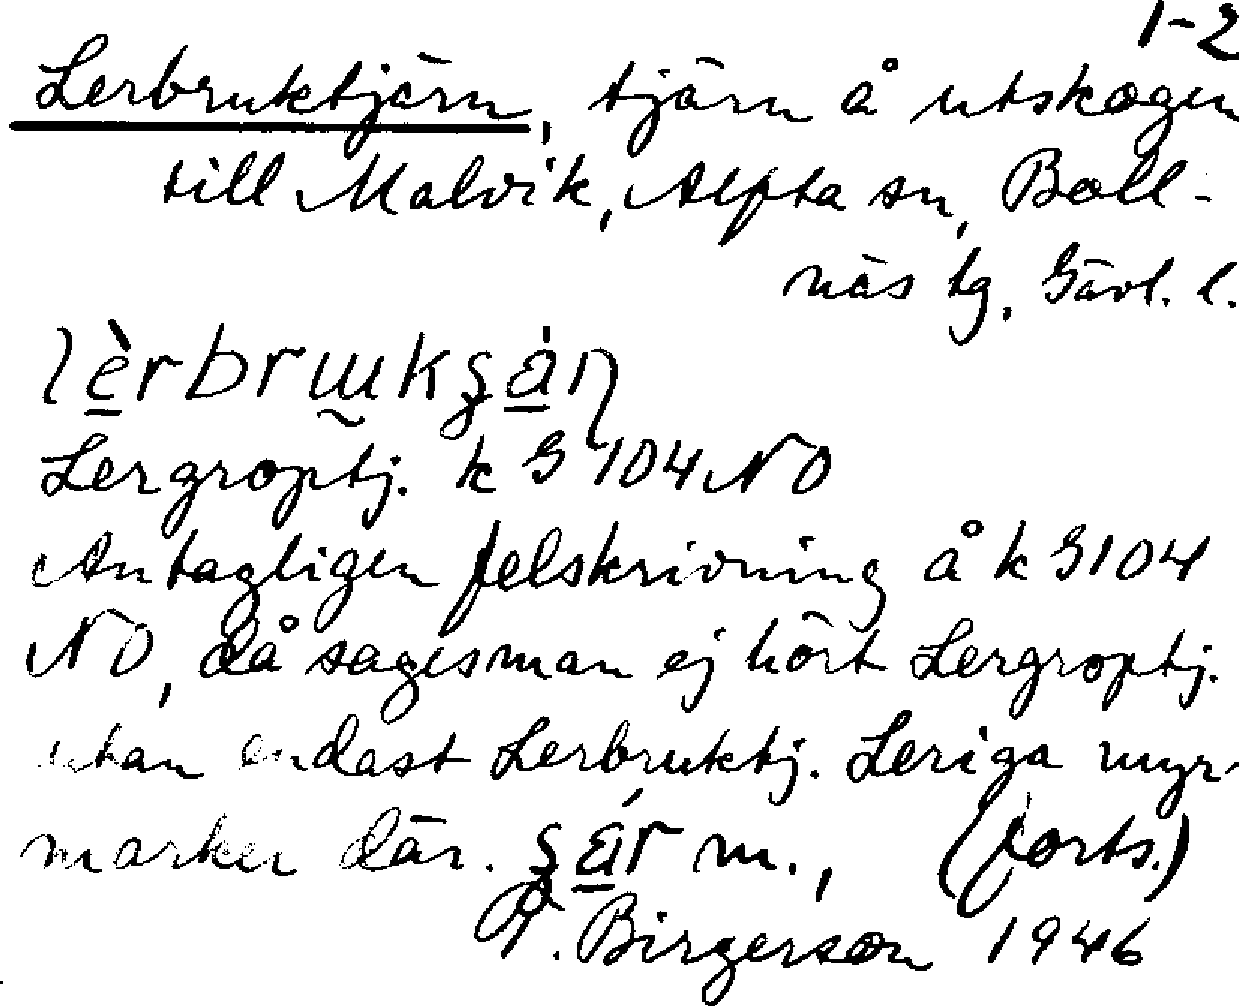 1-2
Lerbruktjärn, tjärn å utskogen
till Malvik, Alfta sn, Boll-
näs tg, Gävl. l.
lèrbrukʂán
Lergroptj. k G 104 NO
Antagligen felskrivning å k G104
NO, då sagesman ej hört Lergroptj.
utan endast Lerbruktj. Leriga myr-
marker där. ʂár m., (forts.)
T. Birgerson 1946